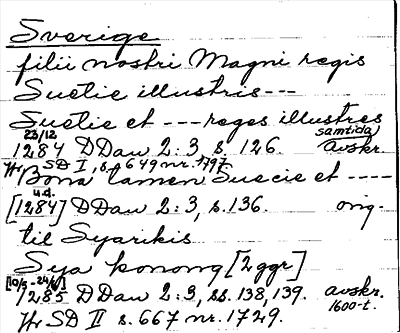 Sverige
filii nostri Magni regis
Suetie illustris---
Suetie et --- reges illustres
23/12 samtida
1284 DDan 2:3, s. 126. avskr.
Tr SD I, s. 649 nr. 797.
Bona tamen Suecie et -----
u.d.
[1284] DDan 2:3, s. 136. orig.
til Syarikis
Sya konong [2 ggr]
[10/5-24/6]
1285 DDan 2:3, ss. 138, 139. avskr.
1600-t.
Tr SD II s. 667 nr. 1729.